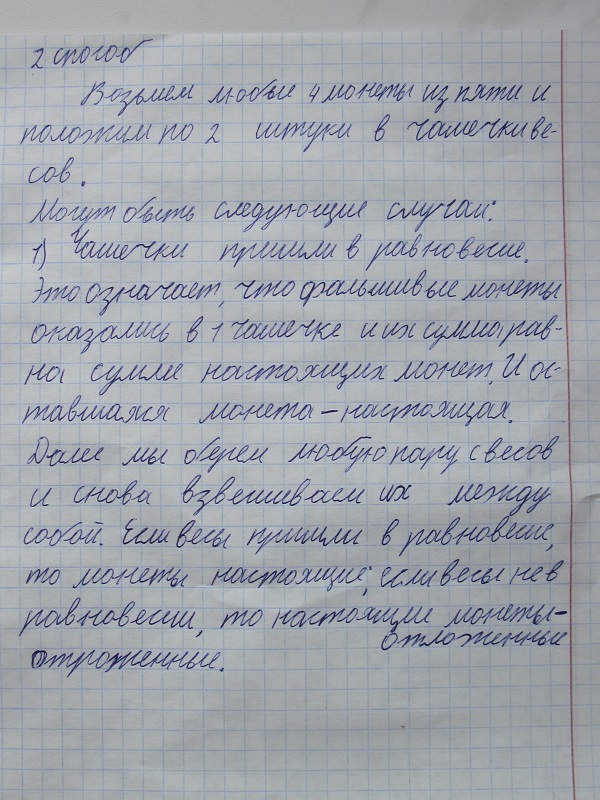 2 способ
Возьмем любые 4 монеты из пяти и
положим по 2 штуки в чашечки ве-
сов.
Могут быть следующие случаи:
1) Чашечки пришли в равновесие.
Это означает, что фальшивые монеты
оказались в 1 чашечке и их сумма рав-
на сумме настоящих монет. И ос-
тавшаяся монета – настоящая.
Далее мы берем любую пару с весов
и снова взвешиваем их между
собой. Если весы пришли в равновесие,
то монеты настоящие; если весы не в
равновесии, то настоящие монеты –
отложенные
отроженные.